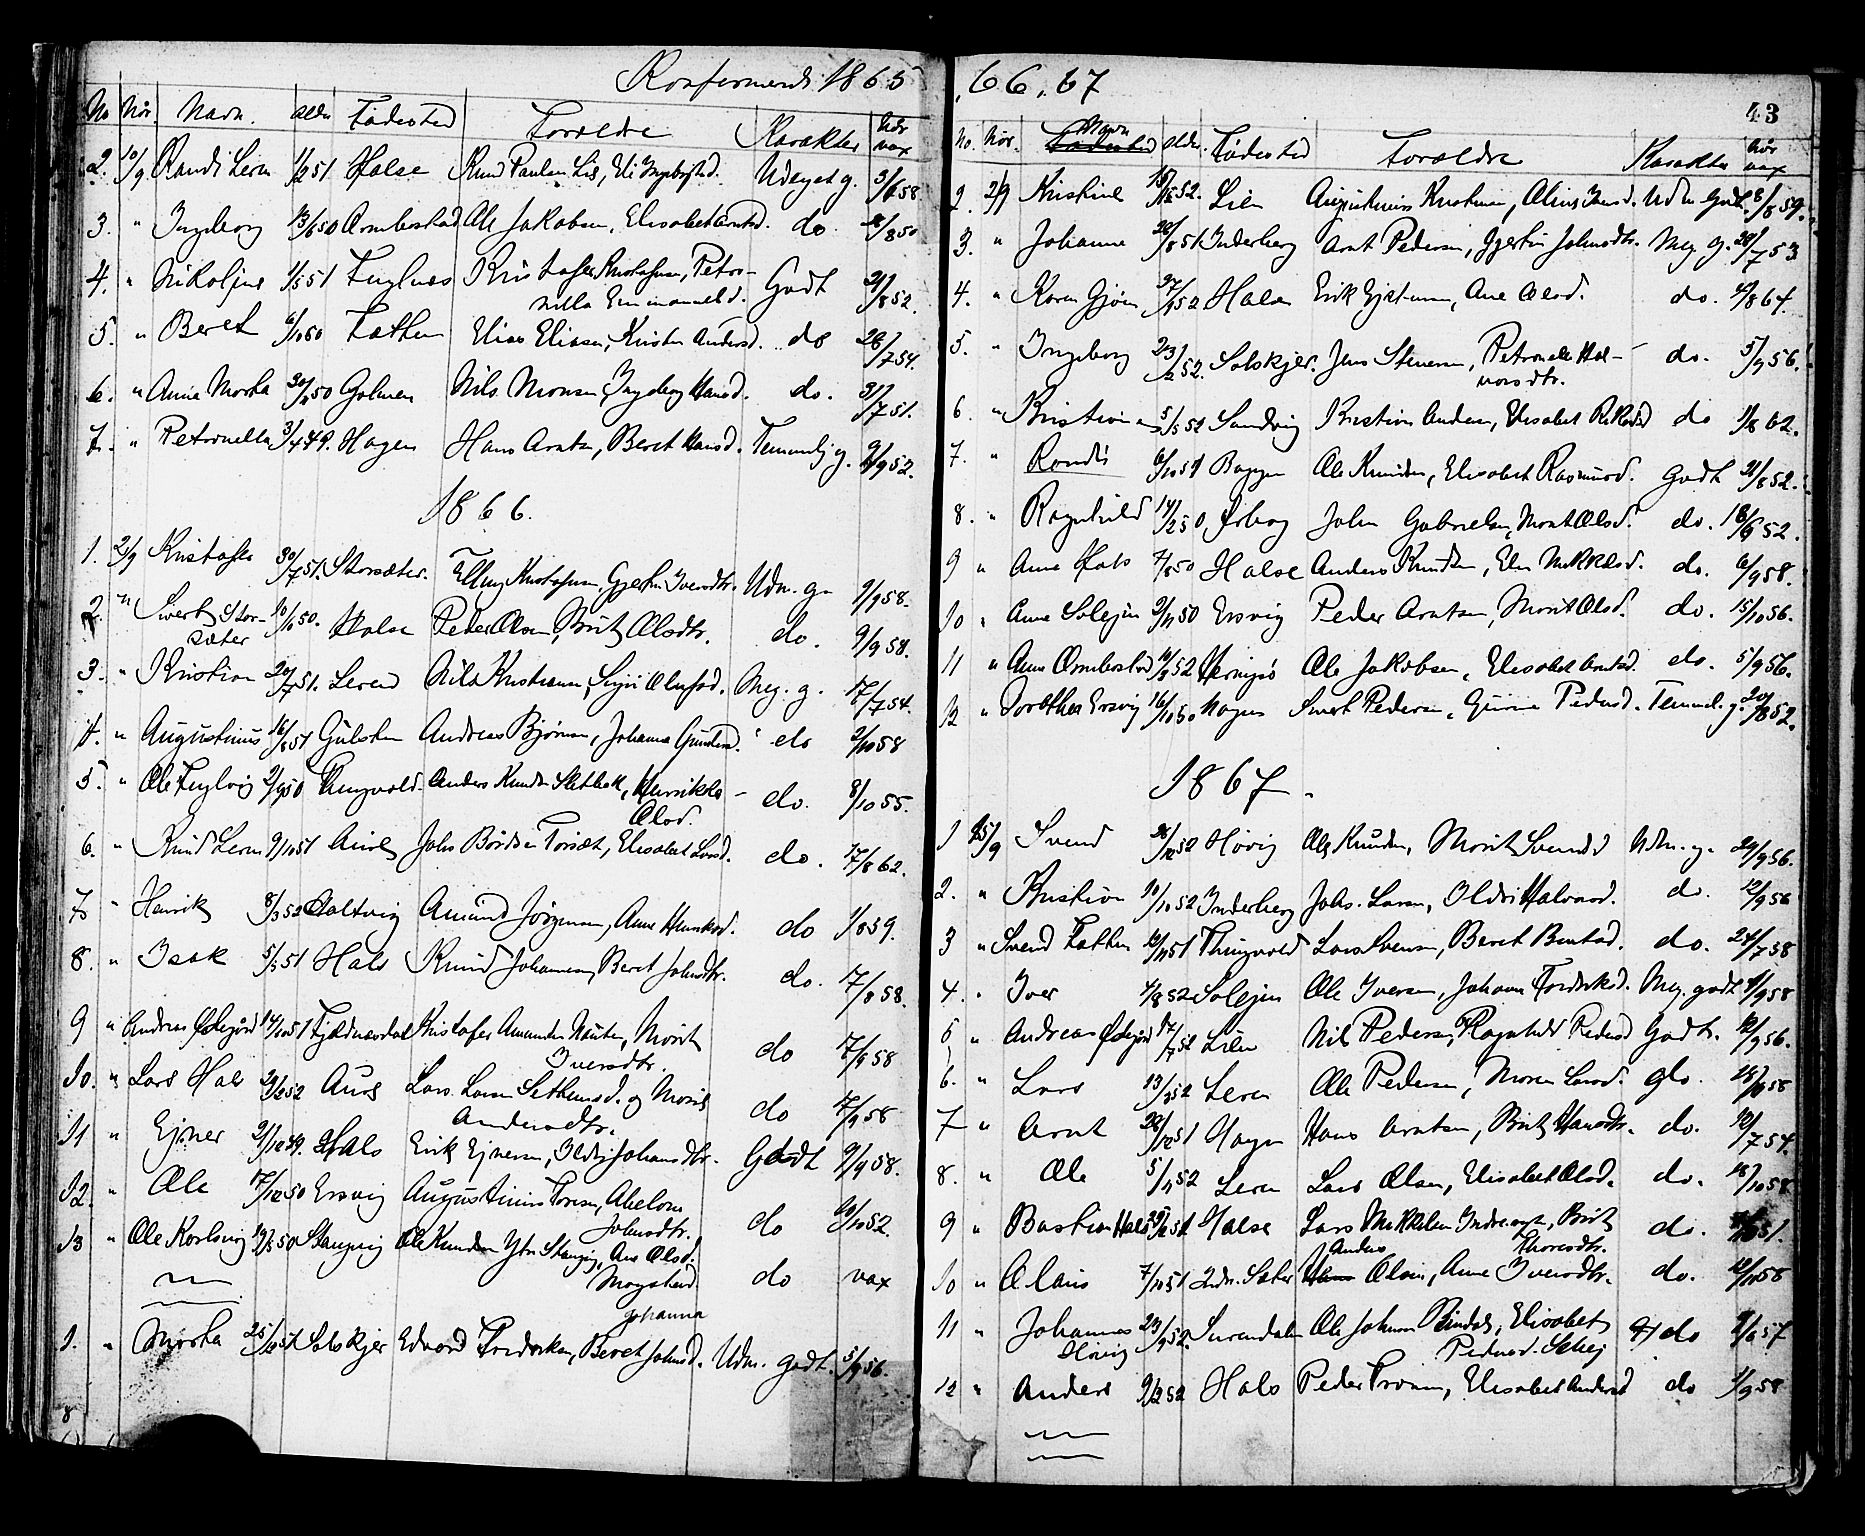 Konfermerede 1865
No Når. Navn. alder Födested Forældre Karakter Når vax
2. 10/9 Randi Leren 1/2 51 Halse Knud Paulsen Lis, Eli Ingebrigtsd. Udmget g. 3/8 58
3. " Ingeborg 13/6 50 Ormbostad Ole Jakobsen, Elisabet Arntsd. do. /8 50
4. " Nikoljus 1/5 51 Fuglnes Kristofer Kristofersen, Petro-
nilla Emmanueld. Godt 21/8 52.
5. " Beret 6/10 50 Fætten Elias Eliasen, Kirsten Andersd. do 28/7 54.
6. " Anne Marta 30/11 50 Golmen Nils Monsen, Ingeborg Hansd. do. 31/7 51.
7. " Petronella 3/4 49. Hagen Hans Arntsen, Beret Hansd. Temmelig g. 9/9 52.
1866.
1. 2/9 Kristofer 30/7 51. Storsæter. Elling Kristofersen, Gjertru Iversdtr. Udm. g. 9/9 58.
2. " Sivert Stor-
sæter 10/10 50. Halse Peder Olsen, Brit Olsdtr. do. 9/9 58.
3. " Kristian 20/7 51. Leren Nils Kristiansen, Siri Olufsd. Meg. g. 17/7 54.
4. " Augustinus 16/8 51 Gulsten Andreas Björnsen, Johanna Gundersd. do 2/10 58
5. " Ole Fuglvig 2/9 50 Tungvold. Anders Knudsen Sletbak, Henrikke
Olsd. do. 8/10 55.
6. " Knud Leren 9/10 51 Aure John Bördsen Torset, Elisabet Larsd. do. 17/8 62.
7. " Henrik 8/3 52 Saltvig Amund Jörgensen, Anne Henriksd. do 1/8 59.
8. " Isak 5/3 51 Hals Knud Johannesen, Beret Johnsdtr. do. 7/8 58.
9 " Andreas Ödegård 14/10 51 Fjeldnesdal Kristofer Amundsen Nauten, Marit
Iversdtr. do 7/8 58
10. " Lars Hals 29/2 52 Aure Lars Larsen Settemsd. og Marit
Andersdtr. do 7/9 58
11 " Ejner 21/12 49. Hals Erik Ejnersen, Ildri Johansdtr. Godt 9/9 58.
12. " Ole 17/12 50 Ersvig Augustinius Toresen, Abelone
Johnsdtr. do 20/10 52.
13 " Ole Karlsvig 19/3 50 Stangvig Ole Knudsen Ytr. Stangvig, Ane Olsd.
Mogstad do vax
Johanna
1. " Marta 25/10 51 Solskjer Edvard Fredriksen, Beret Johnsd. Udm. godt. 5/9 56.
8
, 66, 67
43
No. Når. Navn alder. Födested Forældre Karakter Når vax
2. 2/9 Kristine 15/12 52. Lien Augustinus Kristensen, Oline Jensd. Udm. godt. 8/8 59.
3. " Johanne 20/8 51 Inderberg Arnt Pedersen, Gjertru Johnsdtr. Meg g. 20/7 53
4. " Karen Gjön 27/4 52 Halse Erik Ejnersen, Ane Olsd. do. 4/8 64.
5. " Ingeborg 23/2 52. Solskjer. Jens Stenersen, Petronelle Hal-
vorsdtr. do. 5/9 56.
6. " Kristiane 5/5 52 Sandvig Kristian Andersen, Elisabet Rikardsd do 1/8 62.
7. " Randi 6/10 51 Boggen Ole Knudsen, Elisabet Rasmusd. Godt 21/8 52.
8. " Ragnhild 14/2 50 Örbog John Gabrielsen, Marit Olsd. do. 18/6 52.
9 " Anne Hals 7/8 50 Halse Anders Knudsen, Elen Mikkelsd. do. 6/9 58.
10 " Anne Solejen 2/11 50 Ersvig Peder Arntsen, Marit Olsd. do. 15/10 56.
11 " Anne Ormbostad 10/9 52 Hemjsö Ole Jakobsen, Elisabet Arntsd. do. 5/9 56.
12 " Dorothea Ersvig 16/10 50 Magnes Sivert Pedersen, Guru Pedersd. Temmel. g. 20/8 52.
1867.
1 15/9 Svend 26/12 52 Hövig Ole Knudsen, Marit Svendsd Udm. g. 29/9 56.
2. " Kristian 10/10 52 Inderberg Johs. Larsen, Oldri Halvorsd. do. 12/9 56
3 " Svend Fætten 12/11 51 Thingvold Lars Svensen, Beret Bentsd. do. 24/7 58
4. " Iver 4/8 52 Solejen Ole Iversen, Johanne Fredriksd. Meg. godt 11/9 58
5 " Andreas Ödegård 17/7 52 Lien Nils Pedersen, Ragnhild Pedersd Godt. 12/9 56.
6. " Lars 13/3 52 Leren Ole Pedersen, Maren Larsd. do. 18/10 58
7 " Arnt 28/12 51 Hagen Hans Arntsen, Brit Hansdtr. do. 10/7 54.
8. " Ole 5/11 52 Leren Lars Olsen, Elisabet Olsd. do. 18/10 58
9 " Bastian Hals 30/12 51 Halse Lars Mikkelsen Indreeyr, Brit
Thoresdtr. do. 51.
10 " Olaus 7/10 51 Indr. Sæter Anders Olsen, Anne Iversdtr. do. 12/10 58
11 " Johannes
Hövig 23/9 52. Surendalen Ole Johnsen Bindal, Elisabet
Pedersd. Solej do 9/6 57
12 " Anders 9/2 52 Hals Peder Tronsen, Elisabet Andersd do 1/9 58